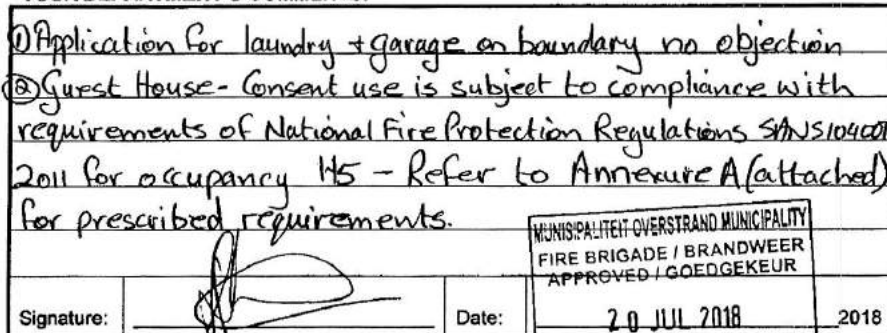 ① Application for laundry + garage on boundary no objection
② Guest House - Consent use is subject to compliance with
requirements of National Fire Protection Regulations SANS10400T
2011 for occupancy H5 - Refer to Annexure A (attached)
for prescribed requirements.
MUNISIPALITEIT OVERSTRAND MUNICIPALITY
FIRE BRIGADE / BRANDWEER
APPROVED / GOEDGEKEUR
Signature:
Date:
20 JUL 2018
2018